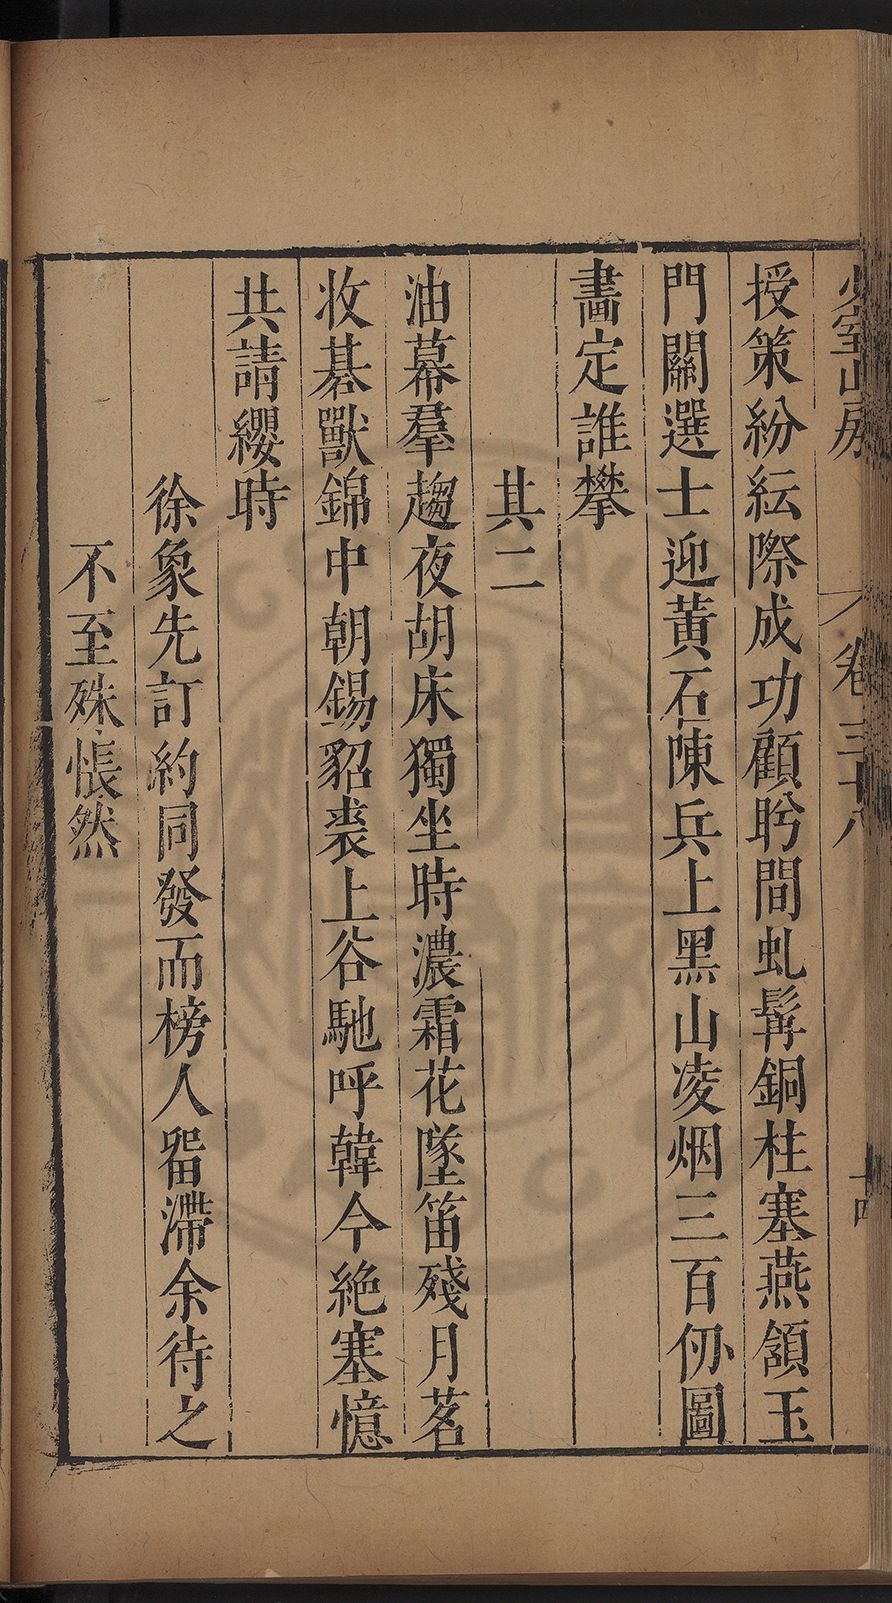 少室山房
卷三十八
十四
授策紛紜際成功顧盻間虬髯銅柱塞燕頷玉
門關選士迎黃石陳兵上黑山凌烟三百仞圖
畵定誰攀
其二
油幕羣趨夜胡床獨坐時濃霜花墜笛殘月茗
收碁獸錦中朝錫貂裘上谷馳呼韓今絶塞憶
共請纓時
徐象先訂約同發而榜人畱滯余待之
不至殊悵然